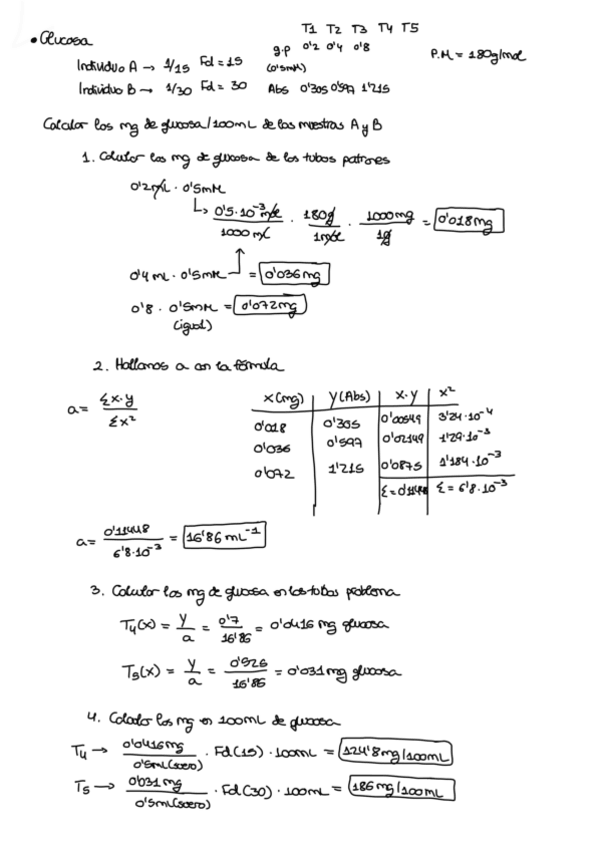 T1 T2 T3 T4 T5
• Glucosa
g.p 0'2 0'4 0'8
P.M = 180g/mol
Individuo A → 1/15 Fd = 15
(0'5mM)
Individuo B → 1/30 Fd = 30
Abs 0'305 0'597 1'215
Calcular los mg de glucosa/100mL de las muestras A y B
1. Calcular los mg de glucosa de los tubos patrones
0'2mL · 0'5mM
↳ 0'5·10⁻³ mol / 1000 mL · 180g / 1mol · 1000mg / 1g = 0'018mg
0'4 mL · 0'5mM = 0'036mg
0'8 · 0'5mM = 0'072mg
(igual)
2. Hallamos a con la fórmula
a = Σx·y / Σx²
x(mg) y(Abs) x·y x²
0'018 0'305 0'00549 3'24·10⁻⁴
0'036 0'597 0'02149 1'29·10⁻³
0'072 1'215 0'0875 5'184·10⁻³
Σ = 0'1148 Σ = 6'8·10⁻³
a = 0'11448 / 6'8·10⁻³ = 16'86 mL⁻¹
3. Calcular los mg de glucosa en los tubos problema
T4(x) = y / a = 0'7 / 16'86 = 0'0416 mg glucosa
T5(x) = y / a = 0'526 / 16'86 = 0'031mg glucosa
4. Calcular los mg en 100mL de glucosa
T4 → 0'0416mg / 0'5mL(suero) · Fd(15) · 100mL = 124'8mg/100mL
T5 → 0'031mg / 0'5mL(suero) · Fd(30) · 100mL = 186mg/100mL